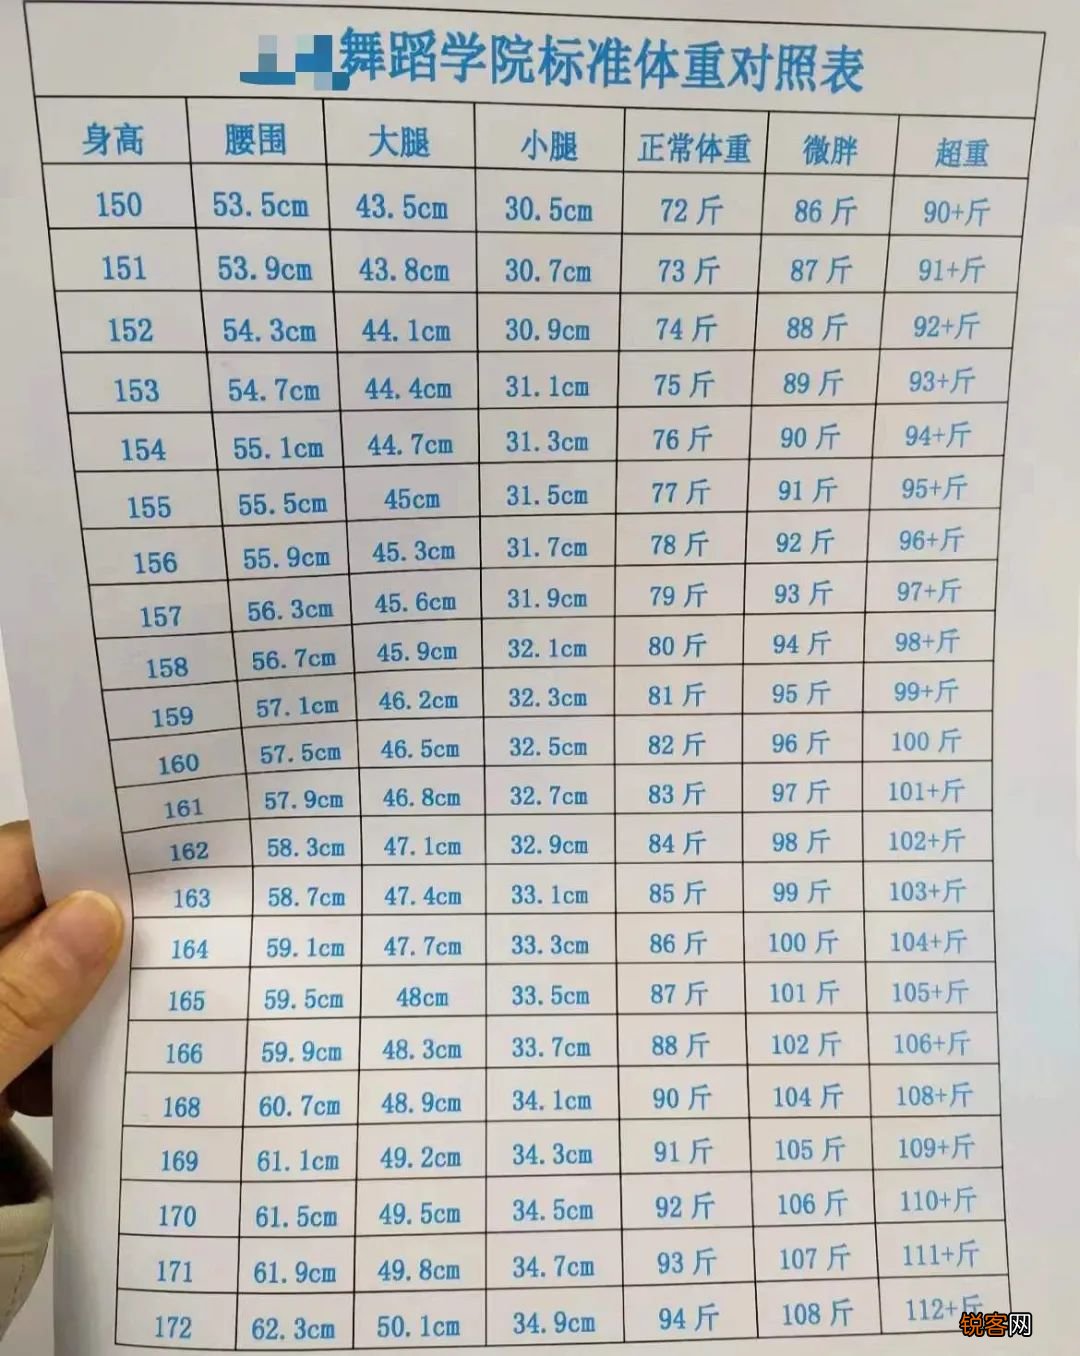 舞蹈学院标准体重对照表
身高 腰围 大腿 小腿 正常体重 微胖 超重
150 53.5cm 43.5cm 30.5cm 72斤 86斤 90+斤
151 53.9cm 43.8cm 30.7cm 73斤 87斤 91+斤
152 54.3cm 44.1cm 30.9cm 74斤 88斤 92+斤
153 54.7cm 44.4cm 31.1cm 75斤 89斤 93+斤
154 55.1cm 44.7cm 31.3cm 76斤 90斤 94+斤
155 55.5cm 45cm 31.5cm 77斤 91斤 95+斤
156 55.9cm 45.3cm 31.7cm 78斤 92斤 96+斤
157 56.3cm 45.6cm 31.9cm 79斤 93斤 97+斤
158 56.7cm 45.9cm 32.1cm 80斤 94斤 98+斤
159 57.1cm 46.2cm 32.3cm 81斤 95斤 99+斤
160 57.5cm 46.5cm 32.5cm 82斤 96斤 100斤
161 57.9cm 46.8cm 32.7cm 83斤 97斤 101+斤
162 58.3cm 47.1cm 32.9cm 84斤 98斤 102+斤
163 58.7cm 47.4cm 33.1cm 85斤 99斤 103+斤
164 59.1cm 47.7cm 33.3cm 86斤 100斤 104+斤
165 59.5cm 48cm 33.5cm 87斤 101斤 105+斤
166 59.9cm 48.3cm 33.7cm 88斤 102斤 106+斤
168 60.7cm 48.9cm 34.1cm 90斤 104斤 108+斤
169 61.1cm 49.2cm 34.3cm 91斤 105斤 109+斤
170 61.5cm 49.5cm 34.5cm 92斤 106斤 110+斤
171 61.9cm 49.8cm 34.7cm 93斤 107斤 111+斤
172 62.3cm 50.1cm 34.9cm 94斤 108斤 112+斤
锐客网